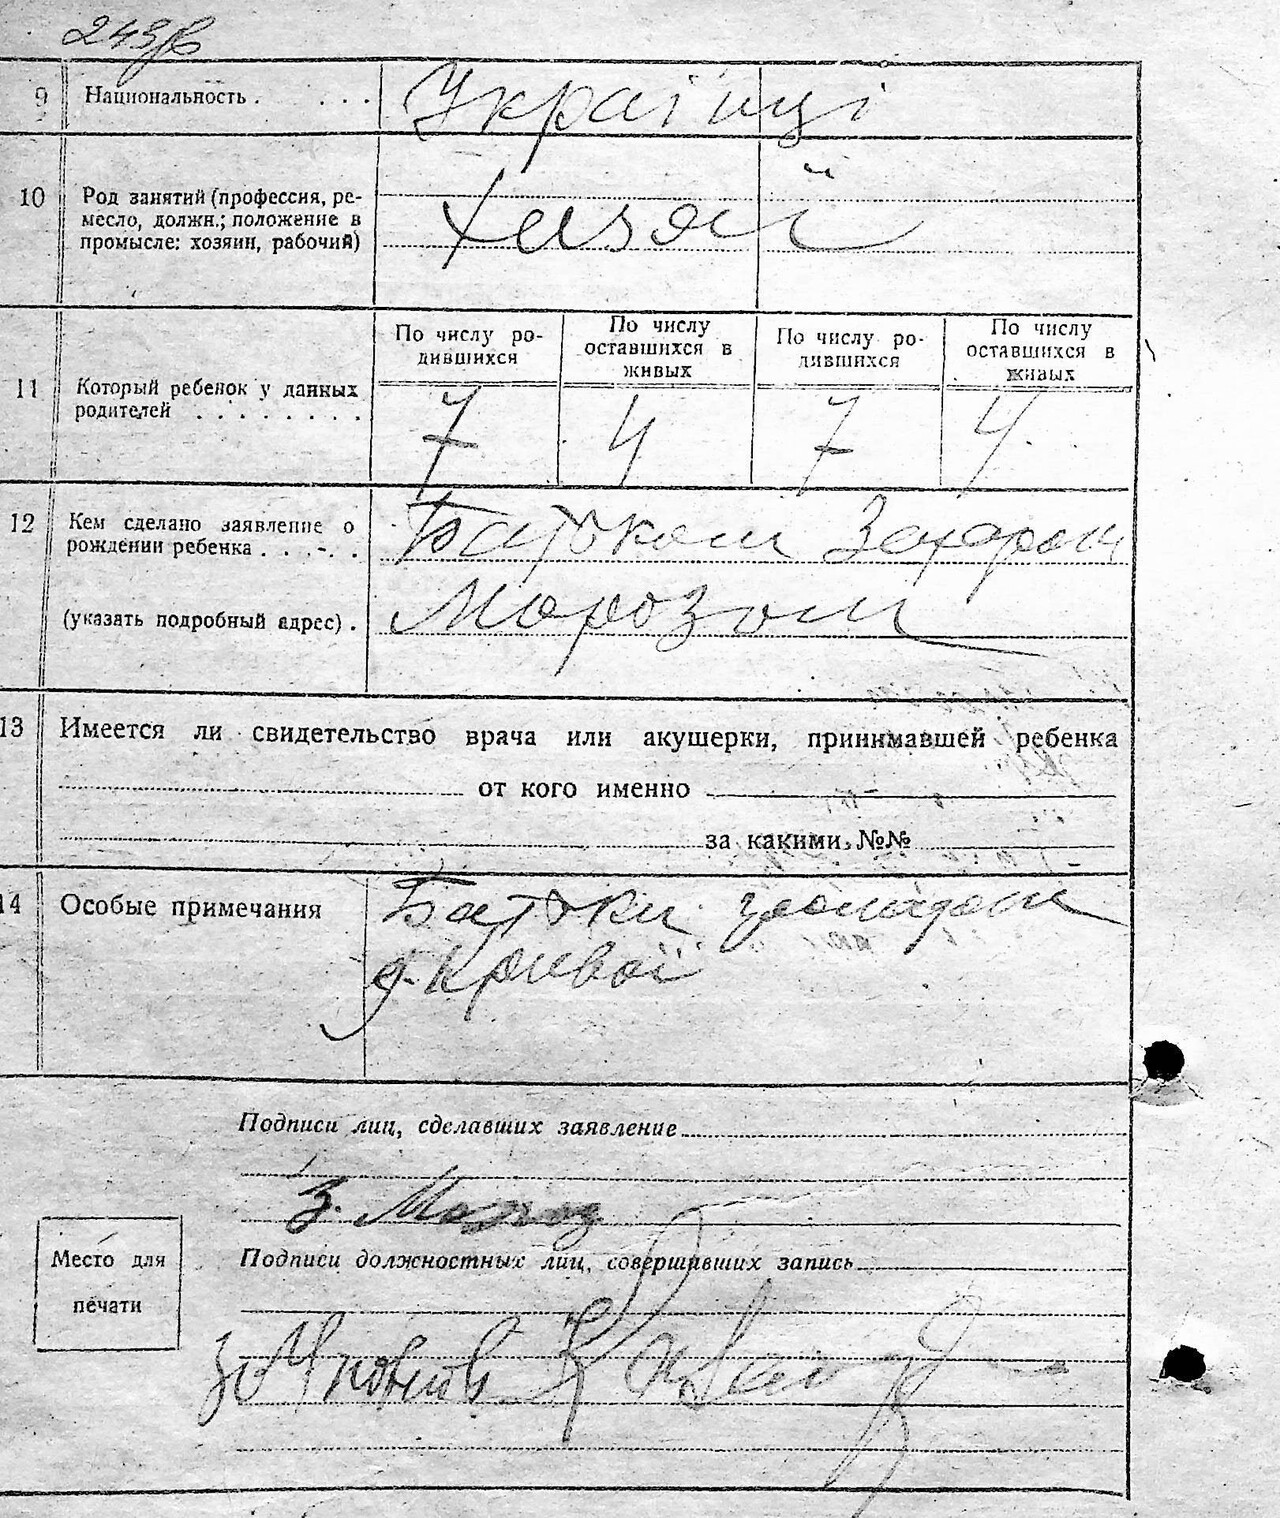 243
9 Национальность . . . . Українці
10 Род занятий (профессия, ре-
месло, должн.; положение в
промысле: хозяин, рабочий)
Хазяй
По числу ро-
дившихся
По числу
оставшихся в
живых
По числу ро-
дившихся
По числу
оставшихся в
живых
11 Который ребенок у данных
родителей . . . . . . . .
7 4 7 4
12 Кем сделано заявление о
рождении ребенка . . . - .
Батьком Захаром
(указать подробный адрес) . Морозом
13 Имеется ли свидетельство врача или акушерки, принимавшей ребенка
от кого именно
за какими №№
14 Особые примечания
Батьки громадяни
д. Кривої
Подписи лиц, сделавших заявление
З. Мороз
Место для
печати
Подписи должностных лиц, совершивших запись